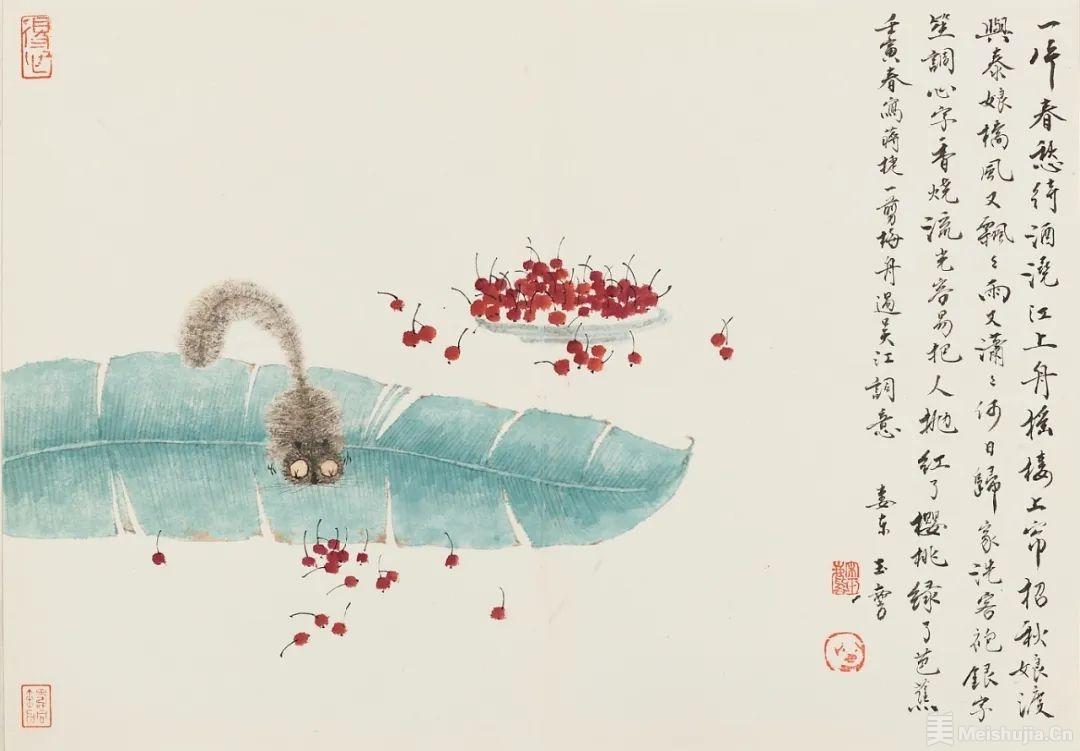 一片春愁待酒澆江上舟搖樓上帘招秋娘渡
與泰娘橋風又飄〻雨又瀟〻何日歸家洗客袍銀字
笙調心字香燒流光容易把人拋紅了櫻桃綠了芭蕉
壬寅春寫蔣捷一剪梅舟過吳江詞意 婁东玉
美 Meishujia.Cn